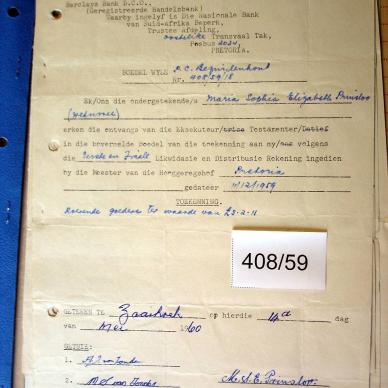 Barclays Bank D.C.O.,
(Geregistreerde Handelsbank)
Waarby ingelyf is Die Nasionale Bank
van Suid-Afrika Beperk,
Trustee Afdeling,
Oostelike Transvaal Tak,
Posbus
PRETORIA.
BOEDEL WYLE P.C. Bezuidenhout
Nr. 408/59/18
Ek/Ons die ondergetekende/s Maria Sophia Elizabeth Prinsloo
(weduwee)
erken die ontvangs van die Eksekuteur/trise Testamenter/Datief
in die bovermelde boedel van die toekenning aan my/ons volgens
die Eerste en Finale Likwidasie en Distribusie Rekening ingedien
by die Meester van die Hooggeregshof Pretoria
gedateer 11/12/1959
TOEKENNING.
Roerende goedere ter waarde van £3-2-11
408/59
GETEKEN TE Zaaihoek op hierdie 14de dag
van Mei 1960
GETUIE:
1.
2.
M.S.E. Prinsloo